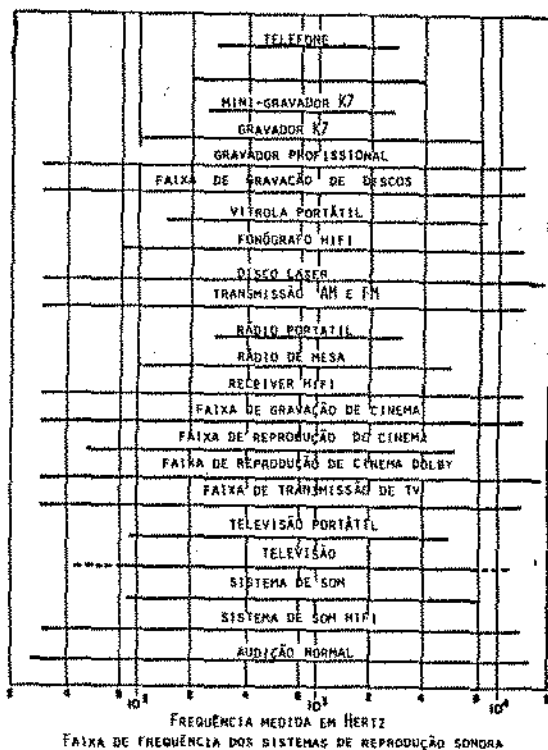 TELEFONE
MINI-GRAVADOR K7
GRAVADOR K7
GRAVADOR PROFISSIONAL
FAIXA DE GRAVAÇÃO DE DISCOS
VITROLA PORTÁTIL
FONÓGRAFO HIFI
DISCO LASER
TRANSMISSÃO AM E FM
RÁDIO PORTATIL
RÁDIO DE MESA
RECEIVER HIFI
FAIXA DE GRAVAÇÃO DE CINEMA
FAIXA DE REPRODUÇÃO DO CINEMA
FAIXA DE REPRODUÇÃO DE CINEMA DOLBY
FAIXA DE TRANSMISSÃO DE TV
TELEVISÃO PORTÁTIL
TELEVISÃO
SISTEMA DE SOM
SISTEMA DE SOM HIFI
AUDIÇÃO NORMAL
4 8 10² 2 4 8 10³ 2 4 8 10⁴
FREQUÊNCIA MEDIDA EM HERTZ
FAIXA DE FREQUÊNCIA DOS SISTEMAS DE REPRODUÇÃO SONORA